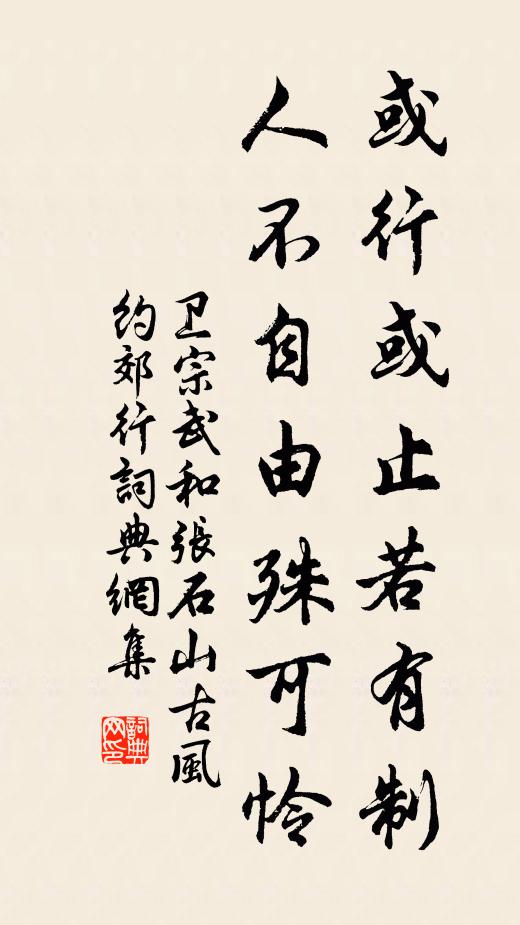 或行或止若有制
人不自由殊可怜
卫宗武和張石山古風
約郊行詞典網集
詞典
网印